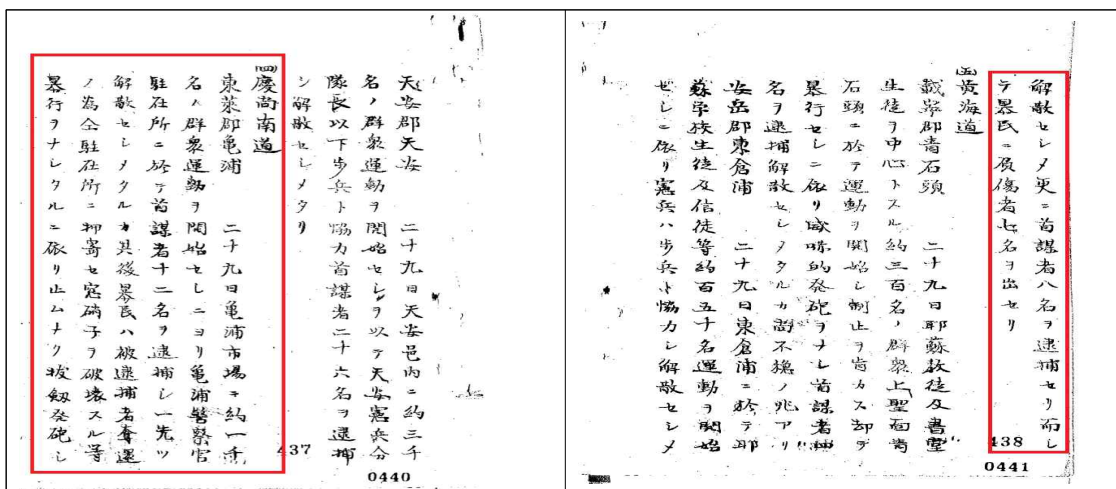 天安郡天安　二十九日天安邑内ニ約三千
名ノ群衆運動ヲ開始セシヲ以テ天安憲兵分
隊長以下歩兵ト協力首謀者二十六名ヲ逮捕
シ解散セシメタリ
(四)慶尚南道
東萊郡亀浦　二十九日亀浦市場ニ約一千
名ノ群衆運動ヲ開始セシニヨリ亀浦警察官
駐在所ニ於テ首謀者十二名ヲ逮捕シ一先ツ
解散セシメタルカ其後暴民ハ被逮捕者奪還
ノ為仝駐在所ニ押寄セ窓硝子ヲ破壊スル等
暴行ヲナシタルニ依リ止ムナク抜剱発砲シ
437
0440
解散セシメ更ニ首謀者八名ヲ逮捕セリ而シ
テ暴民ニ負傷者七名ヲ出セリ
(五)黄海道
載寧郡青石頭　二十九日耶蘇教徒及書堂
生徒ヲ中心トスル約三百名ノ群衆上聖面青
石頭ニ於テ運動ヲ開始シ制止ヲ肯カス却テ
暴行セシニ依リ威嚇的発砲ヲナシ首謀者
名ヲ逮捕解散セシメタルカ尚不穏ノ兆アリ
安岳郡東倉浦　二十九日東倉浦ニ於テ耶
蘇学校生徒及信徒等約百五十名運動ヲ開始
セシニ依リ憲兵ハ歩兵ト協力シ解散セシメ
438
0441